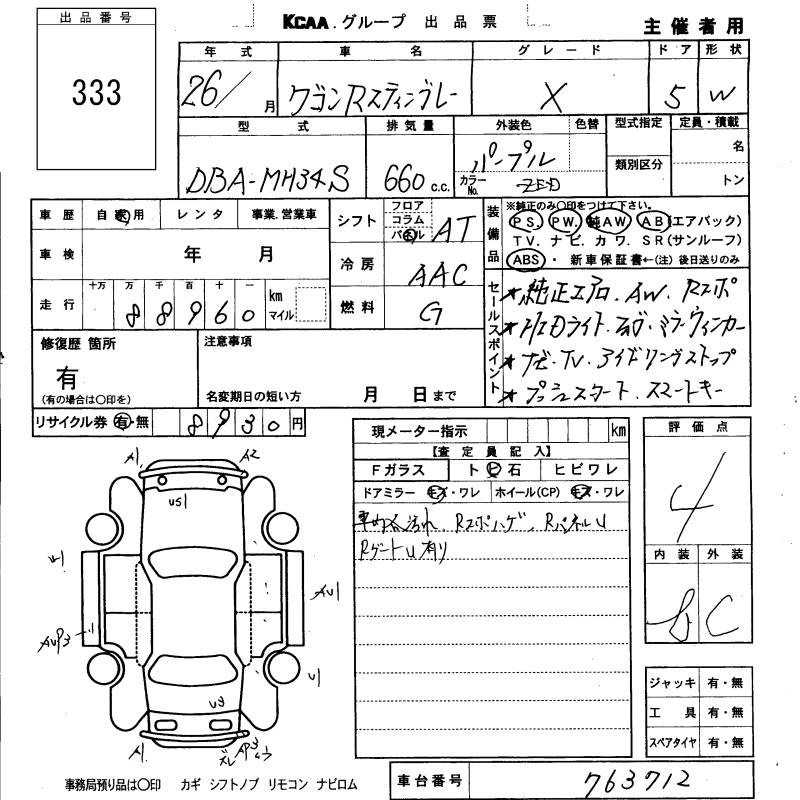 出品番号
333
KCAA.グループ 出品票
主催者用
年式 車名 グレード ドア 形状
26/ 月 ワゴンRスティングレー X 5 W
型式 排気量 外装色 色替 型式指定 定員・積載
DBA-MH34S 660 c.c. パープル
カラーNo. ZED
類別区分
名
トン
車歴 自家用 レンタ 事業.営業車
車検 年 月
走行 十万 万 千 百 十 一
88960 km マイル
シフト フロア コラム パネル AT
冷房 AAC
燃料 G
装備品
※純正のみ○印をつけて下さい。
PS. PW. 純AW. AB(エアバック)
TV. ナビ. カワ. SR(サンルーフ)
ABS ・ 新車保証書←(注) 後日送りのみ
セールスポイント
★純正エアロ.AW.Rスポ
★HIDライト.フォグ.ミラーウィンカー
★ナビ.TV.アイドリングストップ
★プッシュスタート.スマートキー
修復歴 箇所
有
(有の場合は○印を)
注意事項
名変期日の短い方 月 日まで
リサイクル券 有・無 8930円
現メーター指示 km
【査定員記入】
Fガラス トビ石 ヒビワレ
ドアミラー キズ・ワレ ホイール(CP) キズ・ワレ
車内汚れ、Rスポハゲ、RパネルU
RゲートU有り
評価点
4
内装 外装
B C
ジャッキ 有・無
工具 有・無
スペアタイヤ 有・無
A1 A2
US1
AU1
AUP3
U1
U3
A1 ズレ AP3
事務局預り品は○印 カギ シフトノブ リモコン ナビロム
車台番号 763712